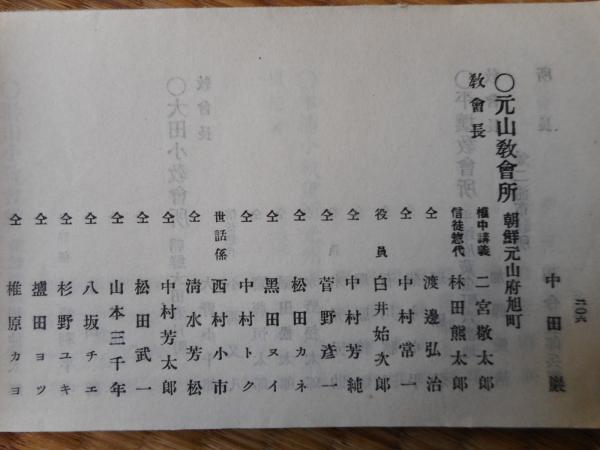 二〇六
中田巖
〇元山敎會所 朝鮮元山府旭町
敎會長 權中講義 二宮敬太郎
信徒惣代 林田熊太郎
仝 渡邊弘治
仝 中村常一
役員 臼井始次郎
仝 中村芳純
仝 菅野彥一
仝 松田カネ
仝 黑田ヌイ
仝 中村トク
世話係 西村小市
仝 淸水芳松
仝 中村芳太郎
仝 松田武一
仝 山本三千年
仝 八坂チエ
仝 杉野ユキ
仝 盬田ヨツ
仝 椎原カヨ